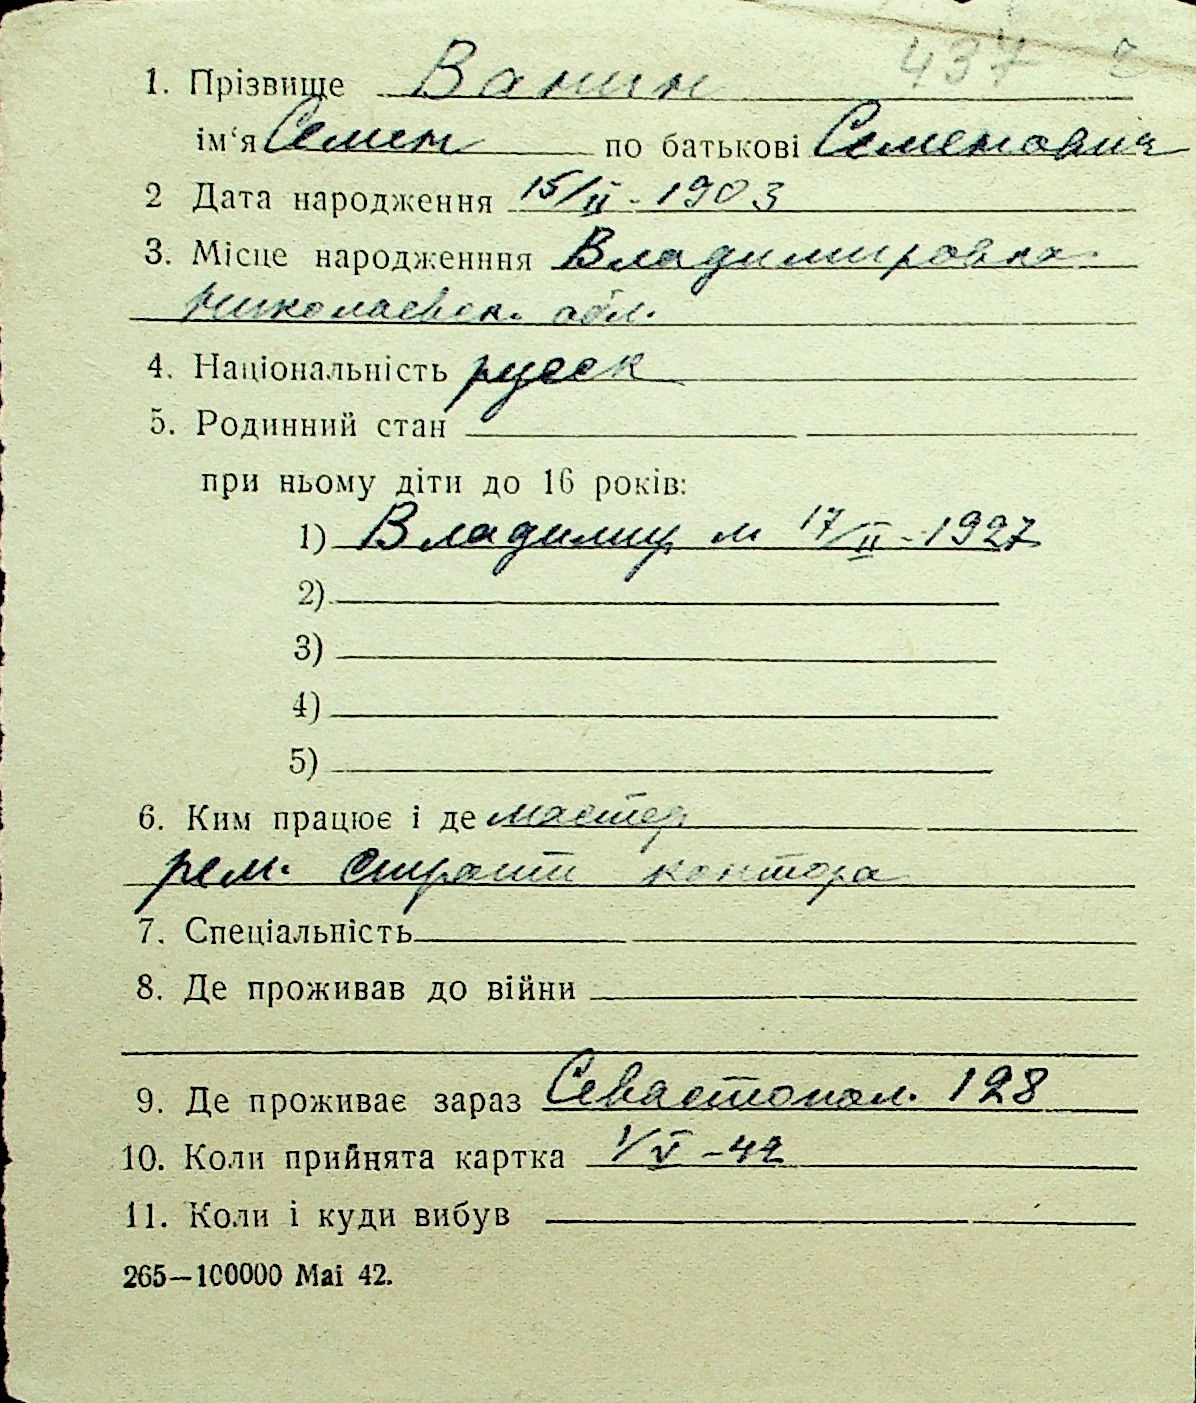 437
1. Прізвище Ванин
ім‘я Семен по батькові Семенович
2 Дата народження 15/II - 1903
3. Місце народженння Владимировка
Николаевск. обл.
4. Національність русск
5. Родинний стан
при ньому діти до 16 років:
1) Владимир м 17/II - 1927
2)
3)
4)
5)
6. Ким працює і де мастер
рем. строит контора
7. Спеціальність
8. Де проживав до війни
9. Де проживає зараз Севастопол. 128
10. Коли прийнята картка 1/V - 42
11. Коли і куди вибув
265—100000 Mai 42.